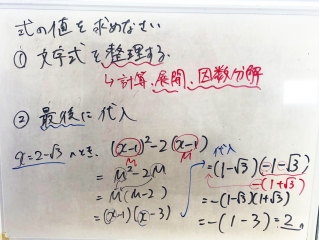 式の値を求めなさい
① 文字式を整理する.
↳ 計算、展開、因数分解
② 最後に代入
x=2-√3 のとき、(x-1)²-2(x-1)
M M
= M²-2M
= M(M-2)
= (x-1)(x-3)
代入
= (1-√3)(-1-√3)
-(1+√3)
= -(1-√3)(1+√3)
= -(1-3)=2